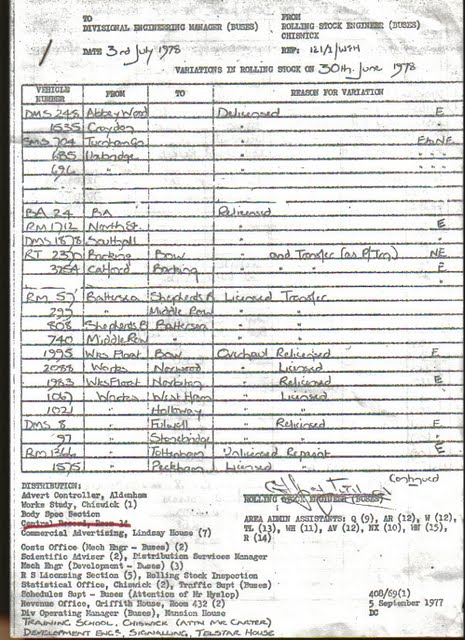 TO FROM
DIVISIONAL ENGINEERING MANAGER (BUSES) ROLLING STOCK ENGINEER (BUSES)
CHISWICK
DATE 3rd July 1978 REF: 121/2/WFH
VARIATIONS IN ROLLING STOCK ON 30th June 1978
VEHICLE NUMBER FROM TO REASON FOR VARIATION
DMS 248 Abbey Wood Delicensed E
1535 Croydon " "
SMS 704 Turnham Gn " E to NE
685 Uxbridge " " " "
696 " " " " "
BA 24 BA Relicensed
RM 1712 North St. " E
DMS 1878 Southall " "
RT 2370 Barking Bow " and Transfer (as P/Trn) NE
3254 Catford Barking " " E
RM 57 Battersea Shepherds B Licensed Transfer "
297 " Middle Row " "
808 Shepherds B Battersea " "
740 Middle Row " " "
1995 Wks Float Bow Overhaul Relicensed E
2088 Works Norwood " Licensed
1983 Wks Float Norbiton " Relicensed E
1067 Works West Ham " Licensed
1021 Holloway " "
DMS 8 Fulwell " Relicensed E
97 Stonebridge " " "
RM 1366 Tottenham Unlicensed Repaint E
1575 Peckham Licensed "
Continued
DISTRIBUTION:
Advert Controller, Aldenham
Works Study, Chiswick (1)
Body Spec Section
Central Record, Room 14
Commercial Advertising, Lindsay House (7)
Costs Office (Mech Engr - Buses) (2)
Scientific Adviser (2), Distribution Services Manager
Mech Engr (Development - Buses) (3)
R S Licensing Section (5), Rolling Stock Inspection
Statistical Office, Chiswick (2), Traffic Supt (Buses)
Schedules Supt - Buses (Attention of Mr Hyslop)
Revenue Office, Griffith House, Room 432 (2)
Div Operating Manager (Buses), Mansion House
TRAINING SCHOOL, CHISWICK (ATTN MR CARTER)
DEVELOPMENT ENGR. SIGNALLING, TELSTAR HOUSE
ROLLING STOCK ENGINEER (BUSES)
AREA ADMIN ASSISTANTS: Q (9), AR (12), W (12),
TL (13), WH (11), AV (12), NX (10), HW (15),
R (14)
408/69(1)
5 September 1977
DC